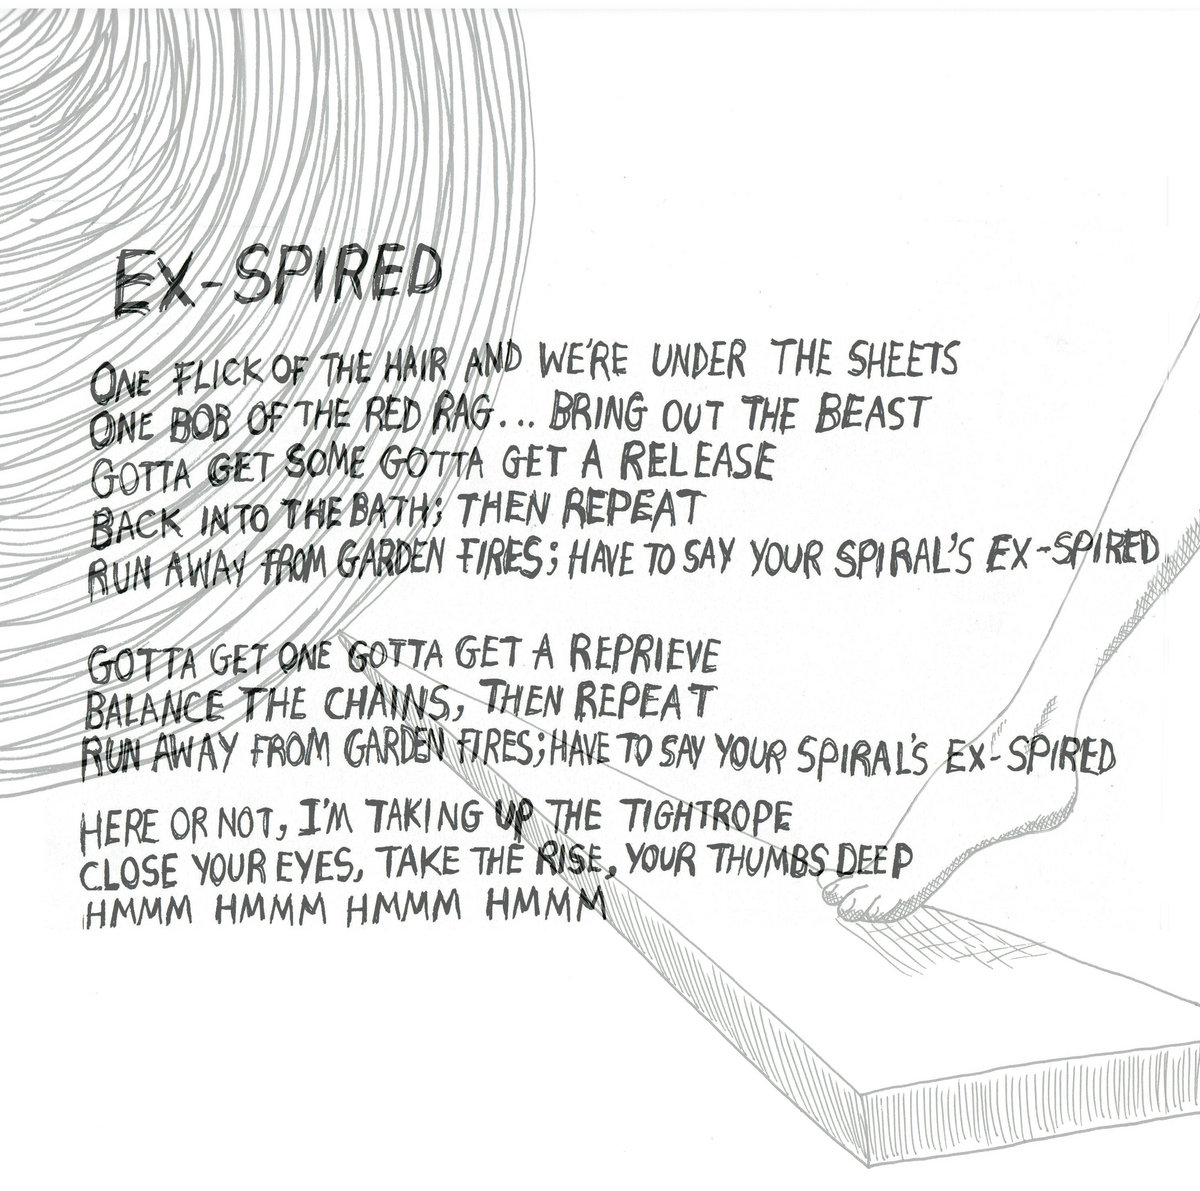 EX-SPIRED
ONE FLICK OF THE HAIR AND WE'RE UNDER THE SHEETS
ONE BOB OF THE RED RAG... BRING OUT THE BEAST
GOTTA GET SOME GOTTA GET A RELEASE
BACK INTO THE BATH; THEN REPEAT
RUN AWAY FROM GARDEN FIRES; HAVE TO SAY YOUR SPIRAL'S EX-SPIRED
GOTTA GET ONE GOTTA GET A REPRIEVE
BALANCE THE CHAINS, THEN REPEAT
RUN AWAY FROM GARDEN FIRES; HAVE TO SAY YOUR SPIRAL'S EX-SPIRED
HERE OR NOT, I'M TAKING UP THE TIGHTROPE
CLOSE YOUR EYES, TAKE THE RISE, YOUR THUMBS DEEP
HMMM HMMM HMMM HMMM